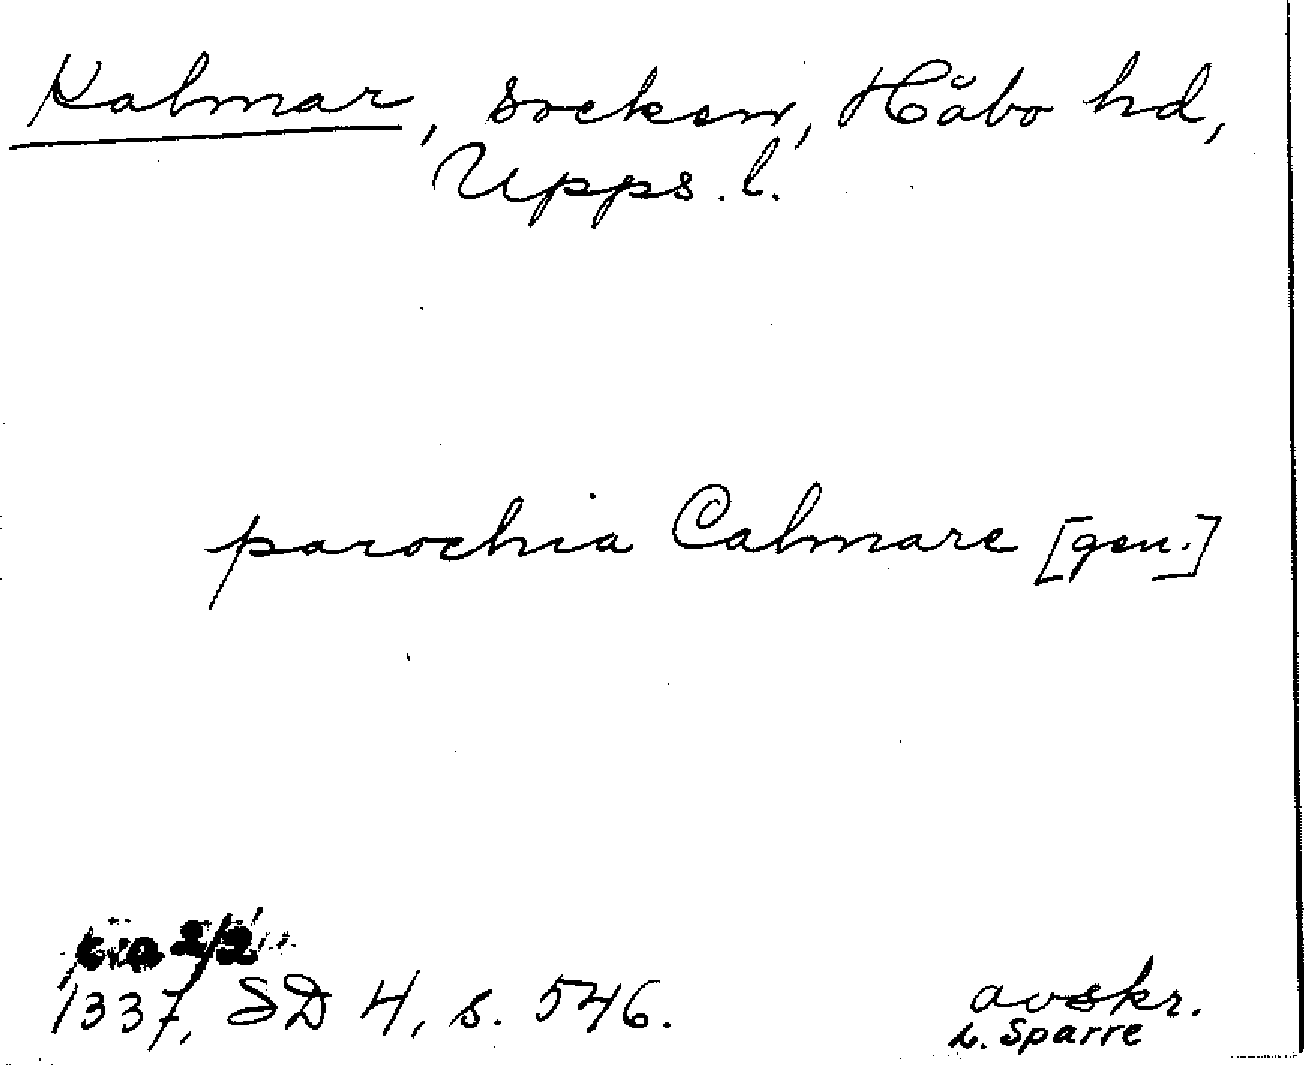 Kalmar, socken, Håbo hd,
Upps. l.
parochia Calmare [gen.]
1337, SD 4, s. 546.
avskr.
L. Sparre